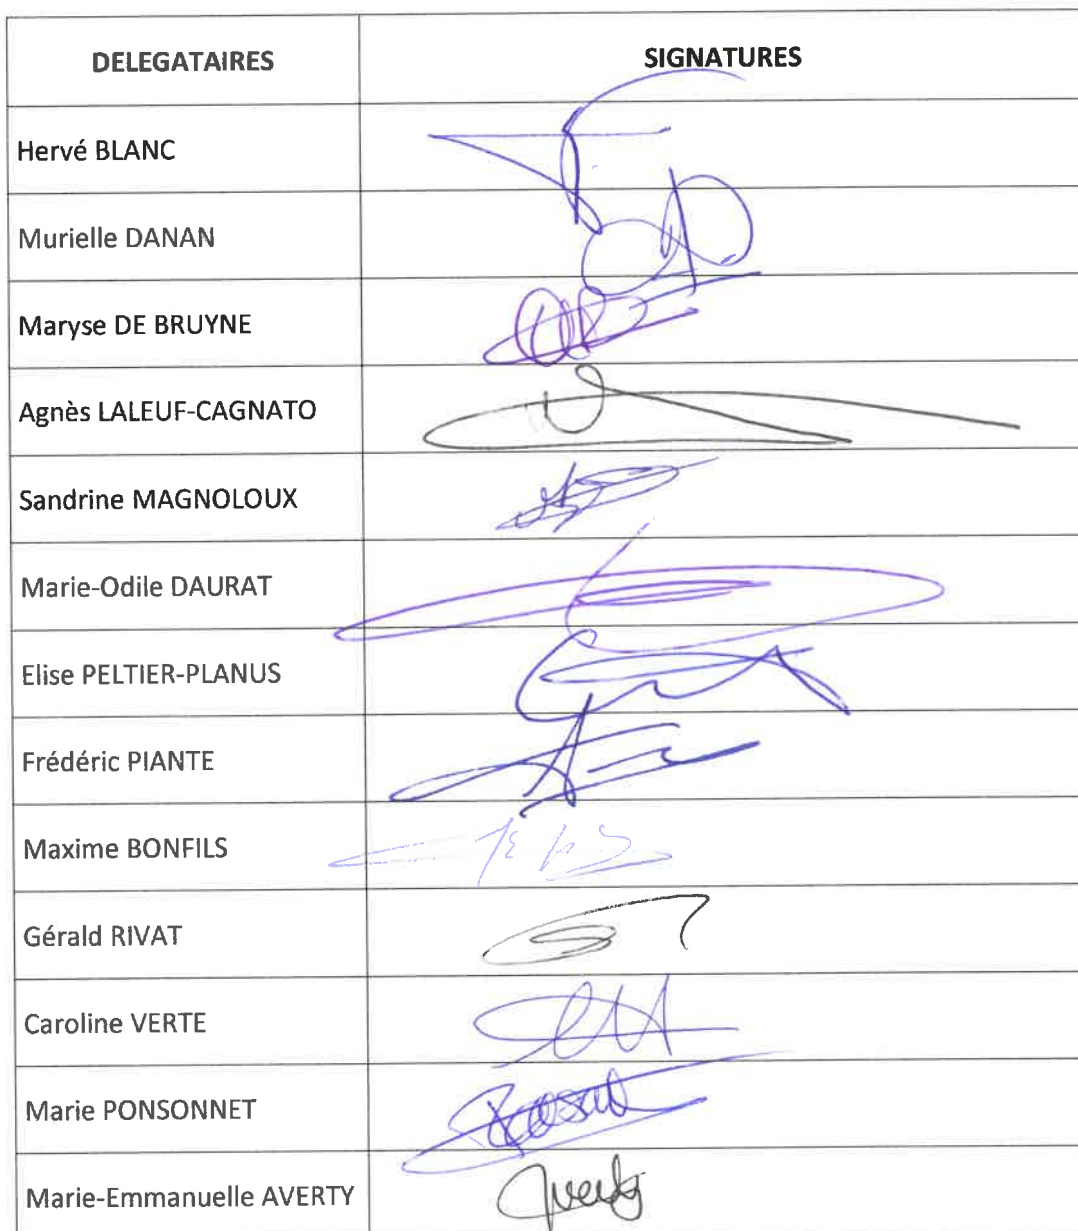 DELEGATAIRES SIGNATURES
Hervé BLANC
Murielle DANAN
Maryse DE BRUYNE
Agnès LALEUF-CAGNATO
Sandrine MAGNOLOUX
Marie-Odile DAURAT
Elise PELTIER-PLANUS
Frédéric PIANTE
Maxime BONFILS
Gérald RIVAT
Caroline VERTE
Marie PONSONNET
Marie-Emmanuelle AVERTY